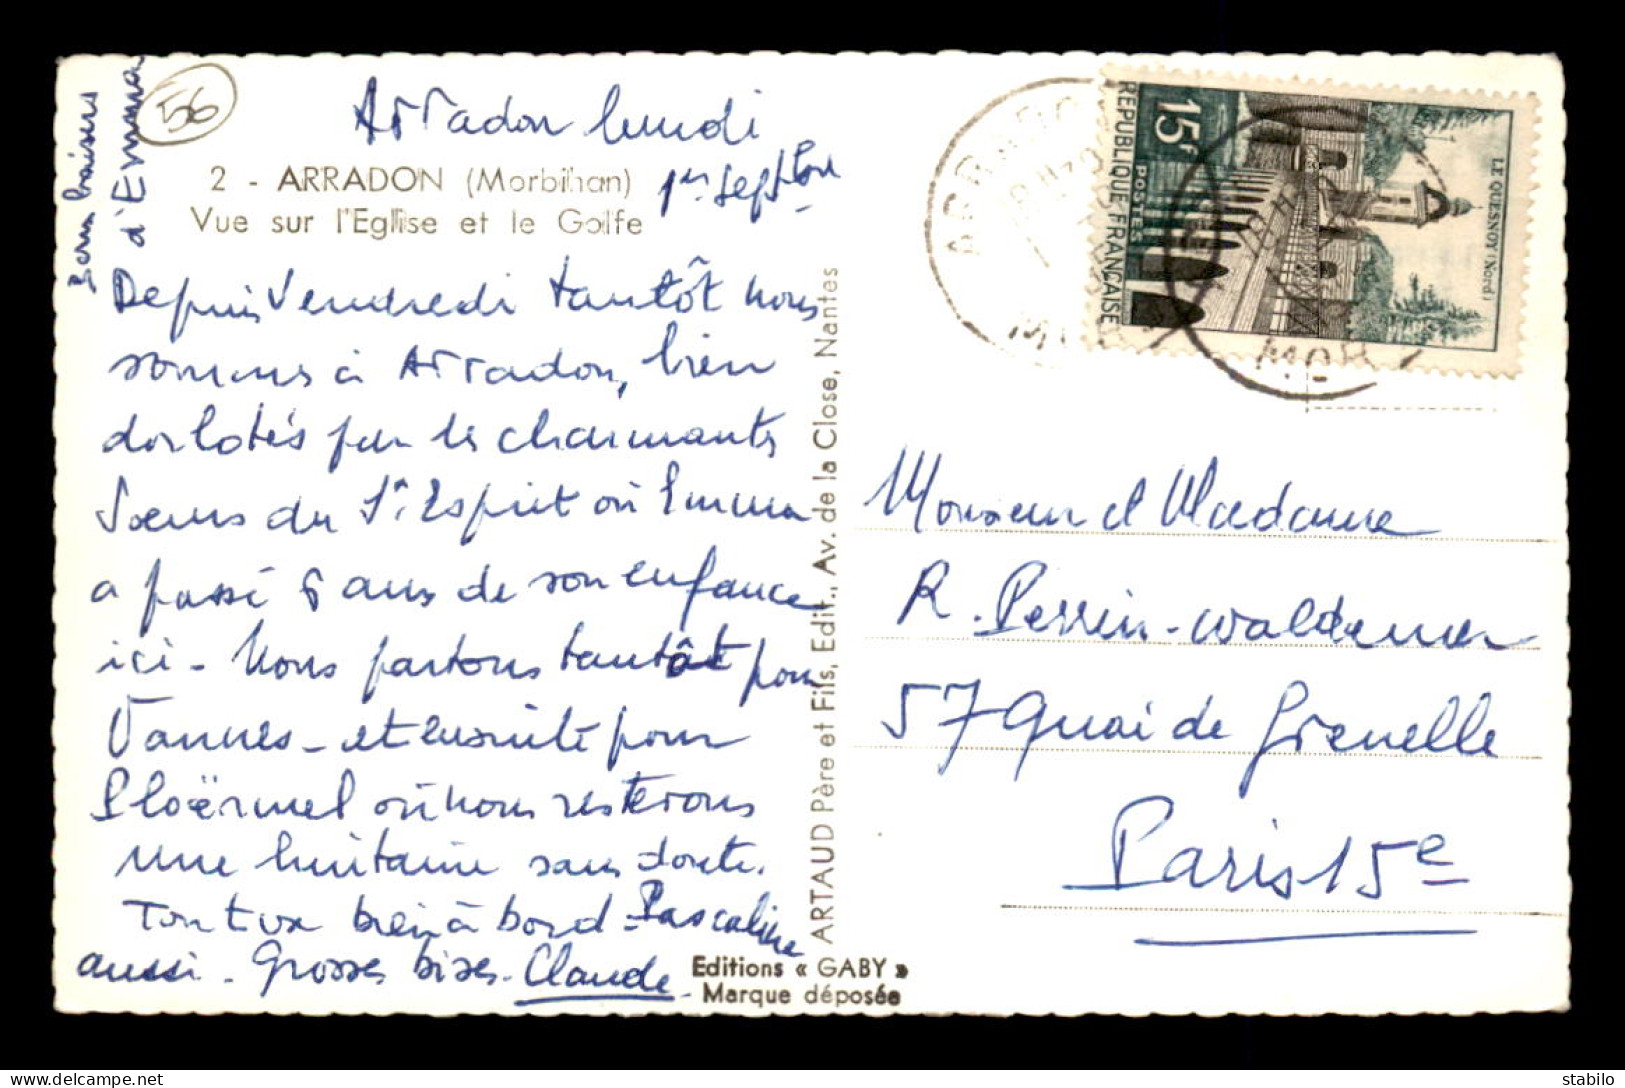 56
Arradon lundi
1er septbre
2 - ARRADON (Morbihan)
Vue sur l'Eglise et le Golfe
Bons baisers
d'Emma
Depuis Vendredi tantôt nous
sommes à Arradon, bien
dorlotés par les charmantes
Soeurs du St. Esprit où Emma
a passé 6 ans de son enfance
ici - Nous partons tantôt pour
Vannes - et ensuite pour
Ploërmel où nous resterons
une huitaine sans doute.
Tout va bien à bord - Pascaline
aussi - Grosses bises - Claude -
ARTAUD Père et Fils, Edit., Av. de la Close, Nantes
Editions « GABY »
Marque déposée
15F
POSTES
REPUBLIQUE FRANÇAISE
LE QUESNOY (Nord)
ARRADON
MOR
Monsieur et Madame
R. Perrin-Waldemer
57 Quai de Grenelle
Paris 15e
delcampe.net
stabilo